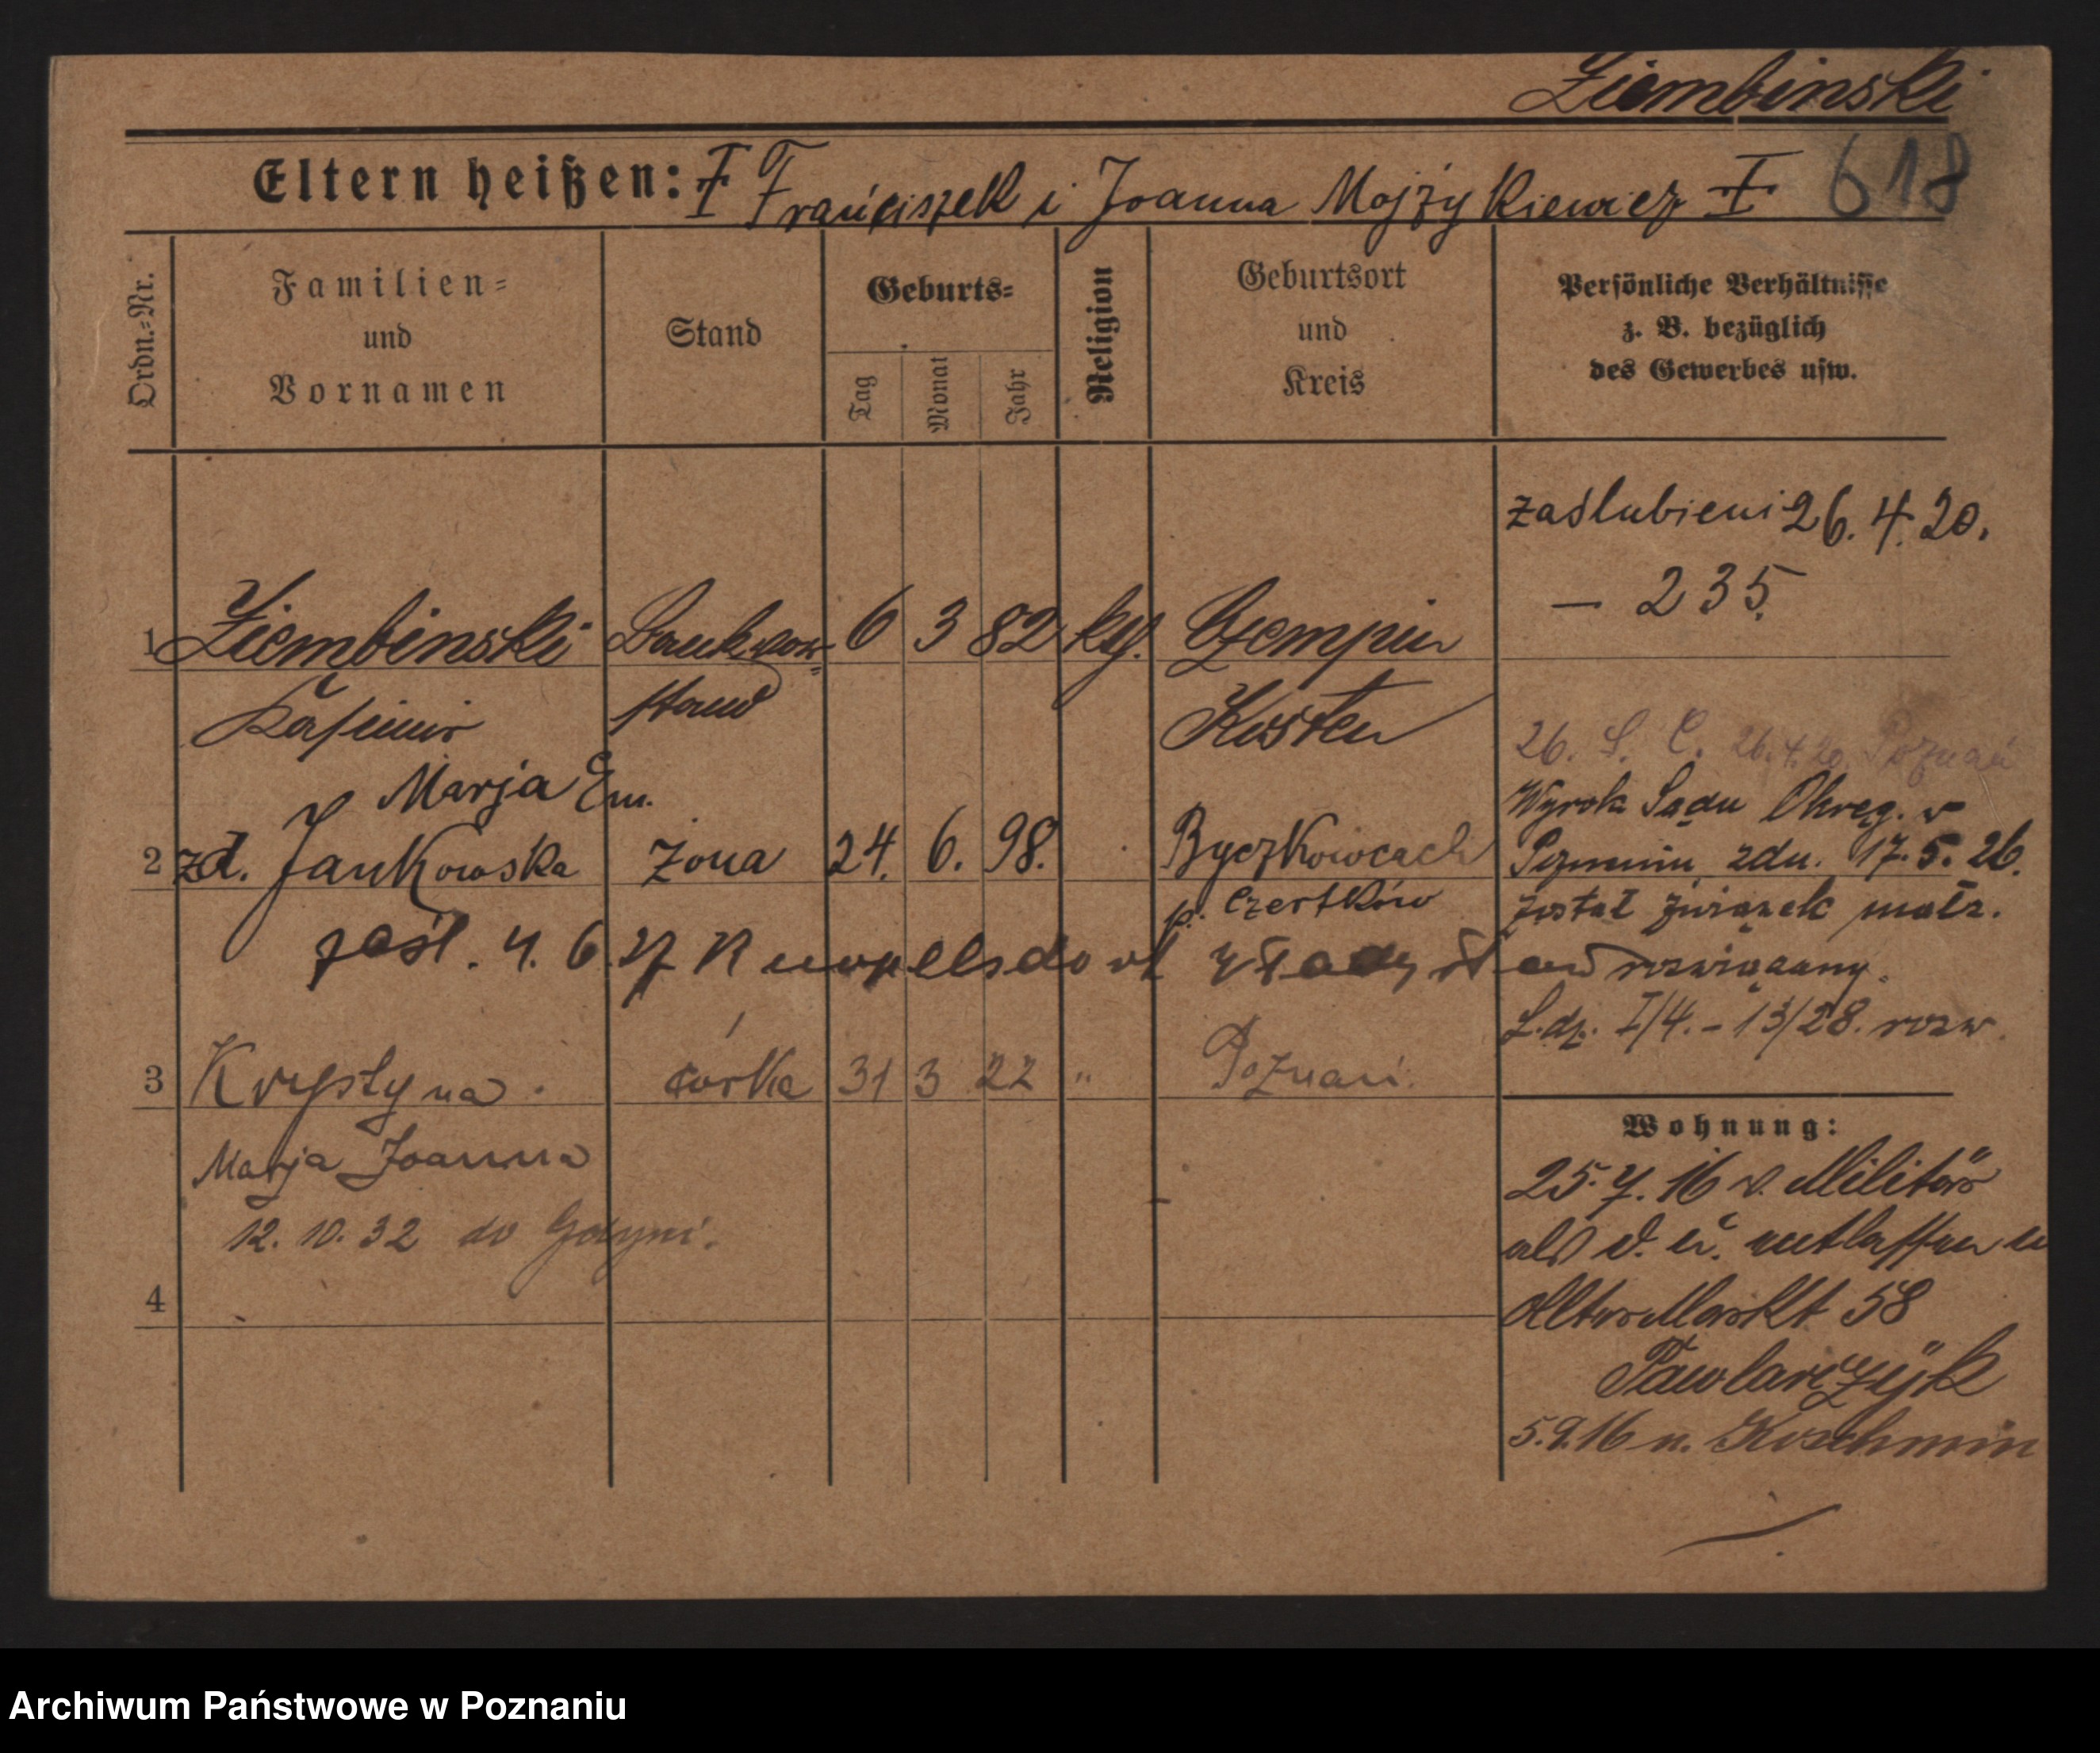 Ziembinski
618
Eltern heißen: † Franciszek i Joanna Mojżykiewicz †
Ordn.-Nr.
Familien-
und
Vornamen
Stand
Geburts-
Tag
Monat
Jahr
Religion
Geburtsort
und
Kreis
Persönliche Verhältnisse
z. B. bezüglich
des Gewerbes usw.
zaślubieni 26. 4. 20.
— 235.
1 Ziembinski 6 3 82 Czempin
Kasimir Kosten
26. 4. 20. Poznań
Marja Em.
Wyrok Sądu Okręg. w
2 zd. Jankowska żona 24. 6. 98. Byczkowcach
Poznaniu zdn. 17. 5. 26.
p. Czertków
został związek małż.
zaśl. 4. 6. 27
rozwiązany.
L.dz. I/4. - 13/28. rozw.
3 Krystyna córka 31 3 22 " Poznań.
Marja Joanna
12. 10. 32 do Gdyni.
4
Wohnung:
25. 7. 16 v. Militär
als d. u. entlassen
Alter Markt 58
Pawlarczyk
5. 9. 16 n. Koschmin
Archiwum Państwowe w Poznaniu